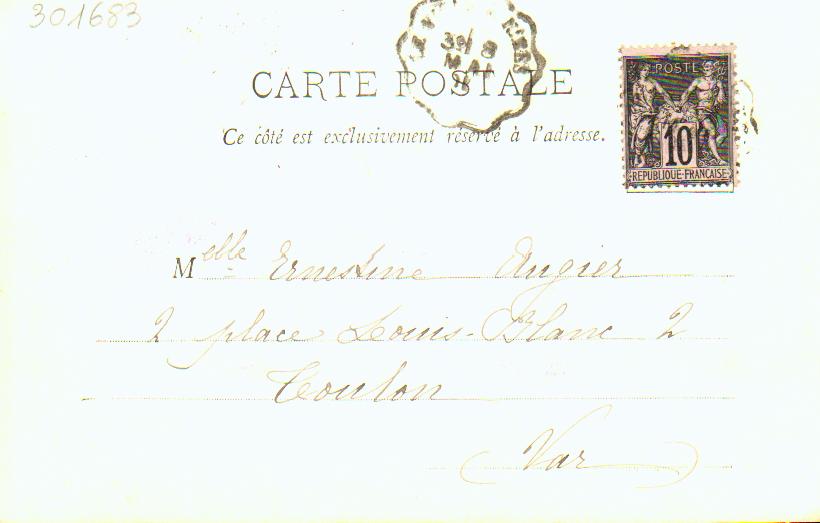 301683
MAI
CARTE POSTALE
Ce côté est exclusivement réservé à l'adresse.
POSTES
10
REPUBLIQUE FRANÇAISE
Melle Ernestine Augier
2 place Louis-Blanc 2
Toulon
(Var)